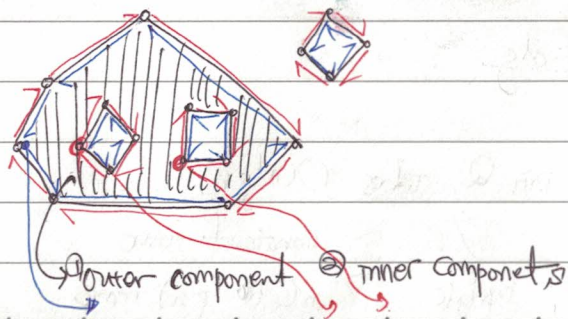 ① outter component ② inner components